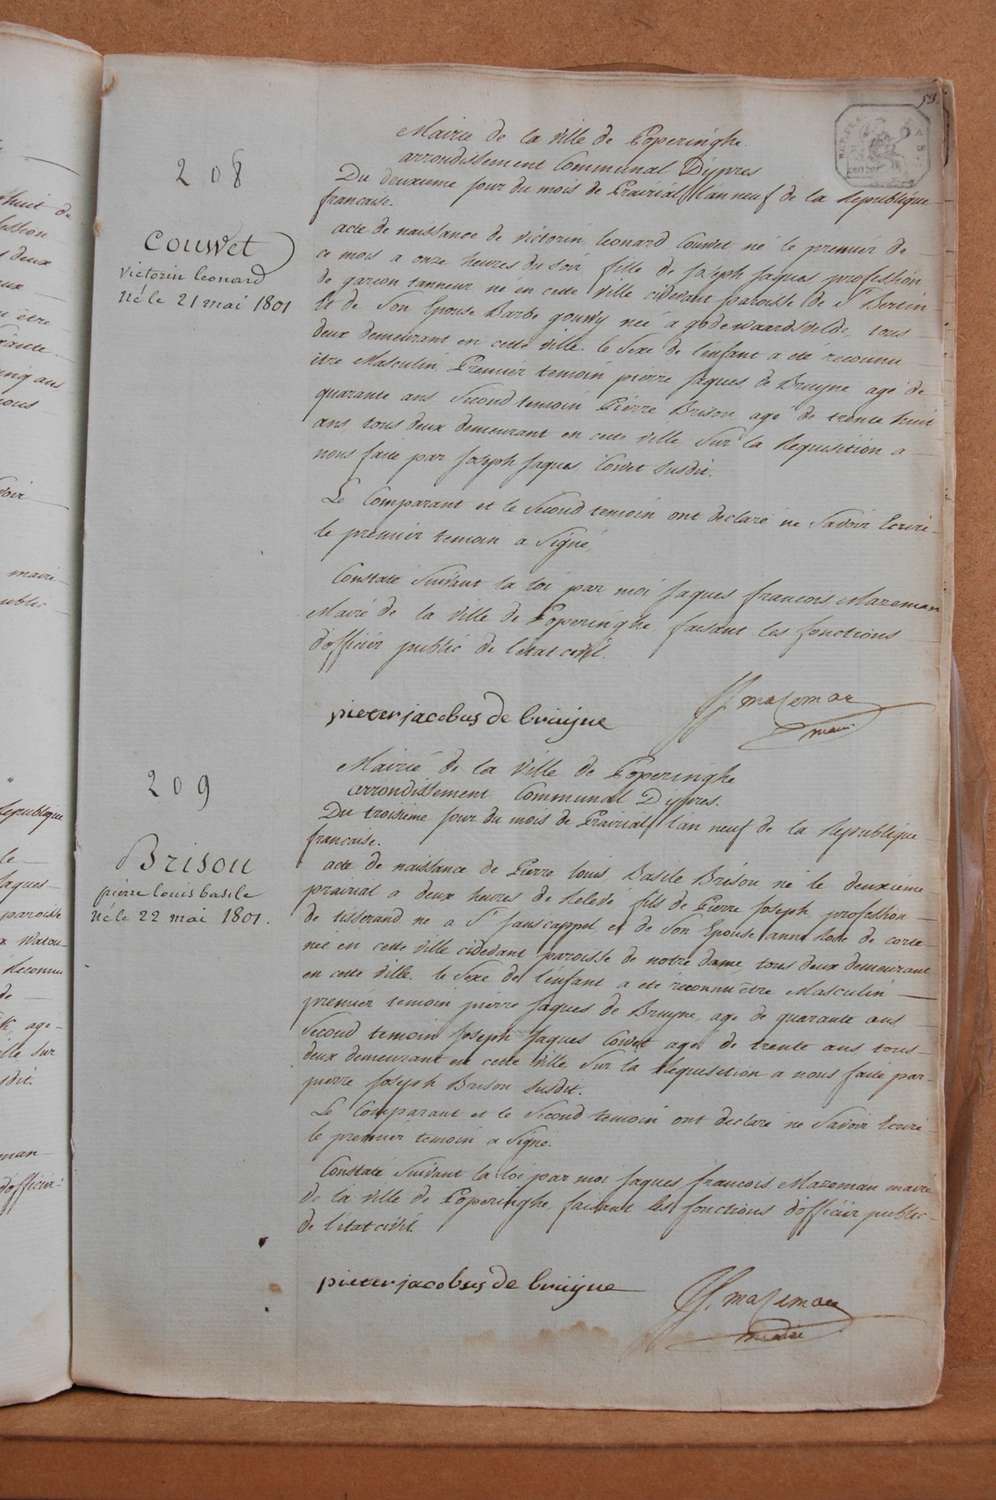 53
208
Mairie de la ville de Poperinghe
arrondissement Communal D'ypres
Du deuxieme jour du mois de Prairial l'an neuf de la Republique
francaise.
Couwet
victorin leonard
né le 21 mai 1801
acte de naissance de victorin leonard Couwet né le premier de
ce mois a onze heures du soir fille de Joseph Jaques profession
de garcon tanneur né en cette ville cidevant paroisse de St Bertin
et de Son Epouse Barbe gouwy née a godewaardsvelde, tous
deux demeurant en cette ville. le Sexe de l'enfant a été reconnu
être Masculin. Premier temoin pierre Jaques de Bruyne agé de
quarante ans Second temoin Pierre Brison agé de trente huit
ans tous deux demeurant en cette ville Sur la Requisition a
nous faite par Joseph Jaques Couwet susdit.
Le Comparant et le Second temoin ont declaré ne Savoir Ecrire
le premier temoin a Signé.
Constaté Suivant la loi par moi Jaques francois Mazeman
Maire de la ville de Poperinghe faisant les fonctions
d'officier public de l'etat civil.
pieter jacobus de bruijne
J. f. mazeman
maire
209
Mairie de la ville de Poperinghe
arrondissement Communal D'ypres.
Du troisieme jour du mois de Prairial l'an neuf de la Republique
francaise.
Brisou
pierre louis basile
né le 22 mai 1801.
acte de naissance de Pierre louis Basile Brisou né le deuxieme
prairial a deux heures de relevé fils de Pierre Joseph profession
de tisserand né a St Janscappel et de Son Epouse anne Rose de corte
née en cette ville cidevant paroisse de notre dame, tous deux demeurant
en cette ville. le Sexe de l'enfant a été reconnu être Masculin
premier temoin pierre Jaques de Bruyne, agé de quarante ans
Second temoin Joseph Jaques Couwet agé de trente ans tous
deux demeurant en cette ville Sur la Requisition a nous faite par
pierre Joseph Brison susdit.
Le Comparant et le Second temoin ont declaré ne Savoir Ecrire
le premier temoin a Signé.
Constaté Suivant la loi par moi Jaques francois Mazeman maire
de la ville de Poperinghe faisant les fonctions d'officier public
de l'etat civil.
pieter jacobus de bruijne
J. f. mazeman
maire